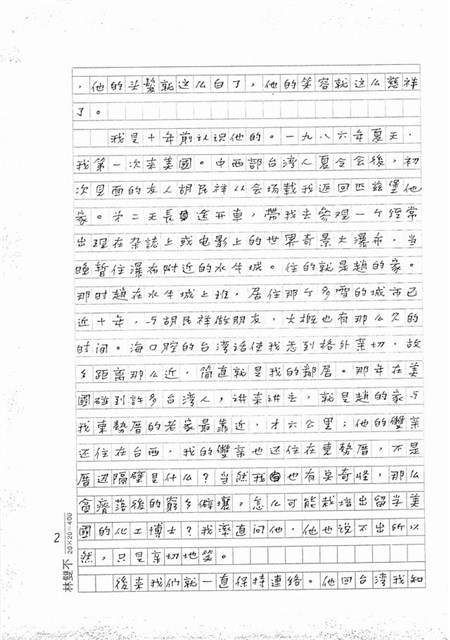 ，他的头髮就这么白了，他的笑容就这么慈祥
了。
我是十年前认识他的。一九八六年夏天，
我第一次来美國。中西部台湾人夏令会後，初
次見面的友人胡民祥从会場載我返回匹兹堡他
家。第二天長途开車，帶我去参观一个經常
出現在杂誌上或电影上的世界奇景大瀑布，当
晚暫住瀑布附近的水牛城。住的就是趙的家。
那时趙在水牛城上班，居住那个多雪的城市已
近十年，与胡民祥做朋友，大概也有那么久的
时间。海口腔的台湾话使我感到格外亲切，故
乡距离那么近，简直就是我的鄰居。那年在美
國碰到許多台湾人，讲来讲去，就是趙的家与
我東勢厝的老家最靠近，才六公里；他的雙亲
还住在台西，我的雙亲也还住在東勢厝，不是
厝边隔壁是什么？当然我也有莫奇怪，那么
貧瘠落後的窮乡僻壤，怎么可能栽培出留学美
國的化工博士？我率直问他，他也说不出所以
然，只是亲切地笑。
後来我们就一直保持連络。他回台湾我知
2
20×20=400
林雙不